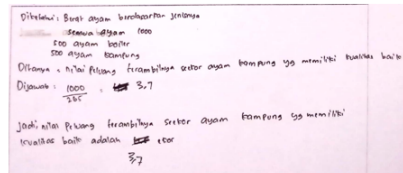 Diketahui : Berat ayam berdasarkan jenisnya
semua ayam 1000
500 ayam boiler
500 ayam kampung
Ditanya : nilai Peluang terambilnya seekor ayam kampung yg memiliki kualitas baik
Dijawab : 1000
365 = 3,7
Jadi, nilai Peluang terambilnya seekor ayam kampung yg memiliki
kualitas baik adalah ekor
3,7